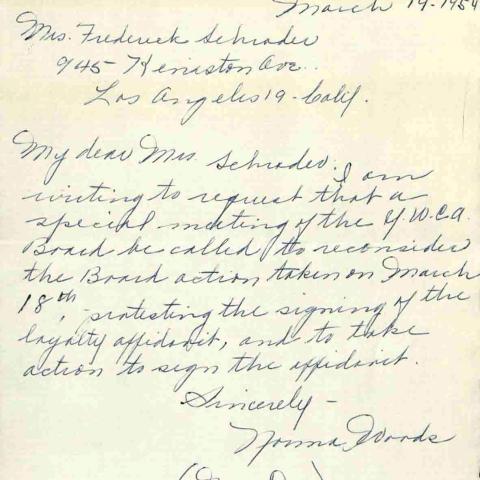 March 19-1954
Mrs. Frederick Schrader
945 Keniston Ave.
Los Angeles 19 - Calif.
My dear Mrs. Schrader: I am
writing to request that a
special meeting of the Y.W.C.A.
Board be called to reconsider
the Board action taken on March
18th, protesting the signing of the
loyalty affidavit, and to take
action to sign the affidavit.
Sincerely -
Norma Woods